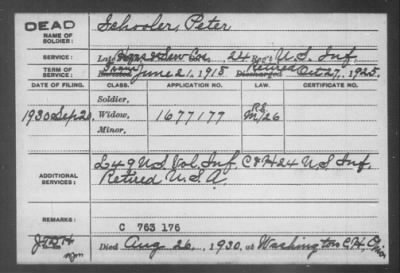 DEAD
NAME OF SOLDIER:
Schooler, Peter
SERVICE:
Late Hdqrs & Serv Co., 24 Reg't U.S. Inf.
TERM OF SERVICE:
Enlisted June 21, 1915 Retired Discharged Oct. 27, 1925.
DATE OF FILING. CLASS. APPLICATION NO. LAW. CERTIFICATE NO.
Soldier,
1930 Sep 20. Widow, 1677177
Minor,
ADDITIONAL SERVICES:
L 49 U.S. Vol. Inf. C & H 24 U.S. Inf.
Retired U.S.A.
REMARKS:
C 763 176
Died Aug 26, 1930, at Washington C.H. Ohio